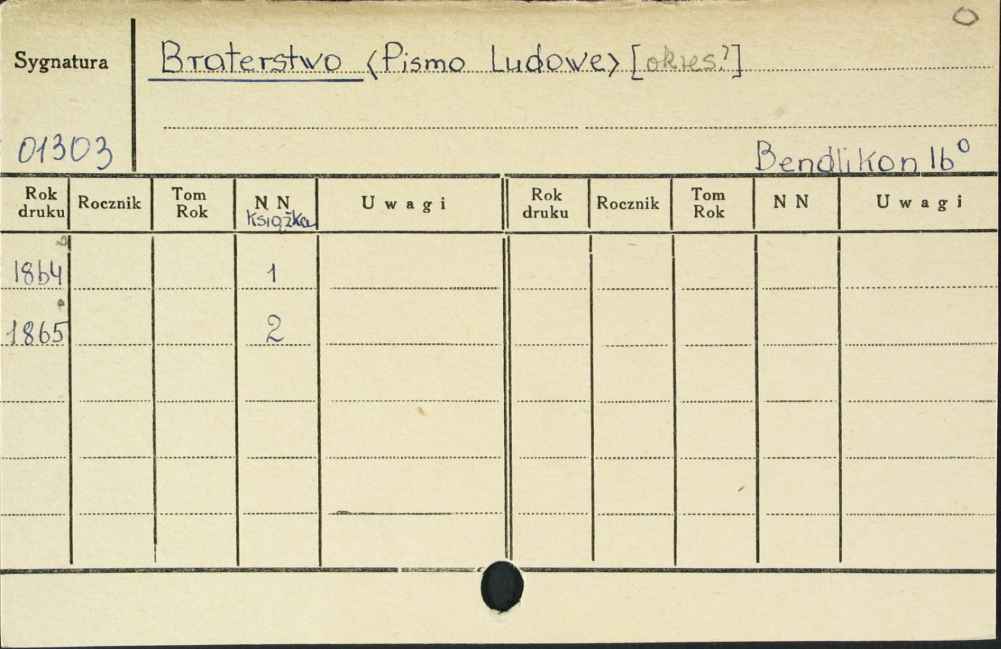 O
Sygnatura
Braterstwo <Pismo Ludowe> [okres?]
01303
Bendlikon 16°
Rok druku Rocznik Tom Rok N N Książka U w a g i Rok druku Rocznik Tom Rok N N U w a g i
1864 1
1865 2